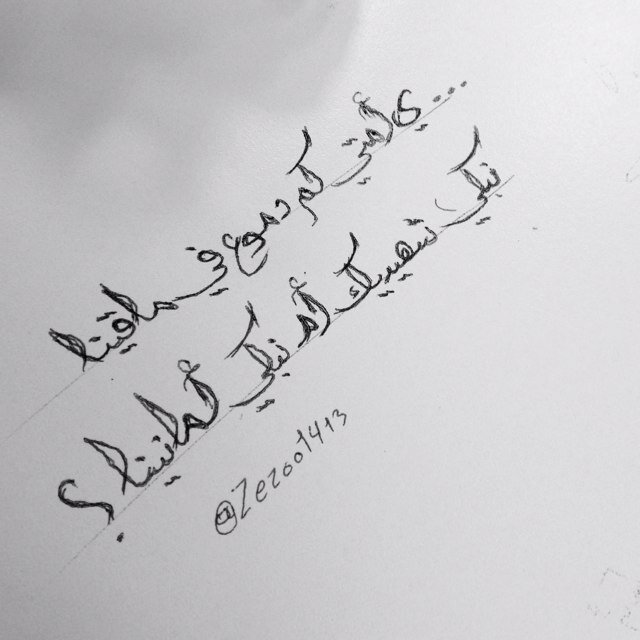 ... ي أمتي كم دموع في ماقينا
نبكي شهيدك أم نبكي أمانينا ؟
@Zezoo1413